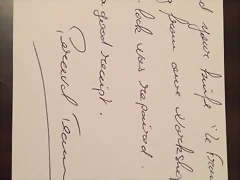 d your knife "Le Fran
g from our workshop
lock was repaired.
a good receipt.
Perceval Team